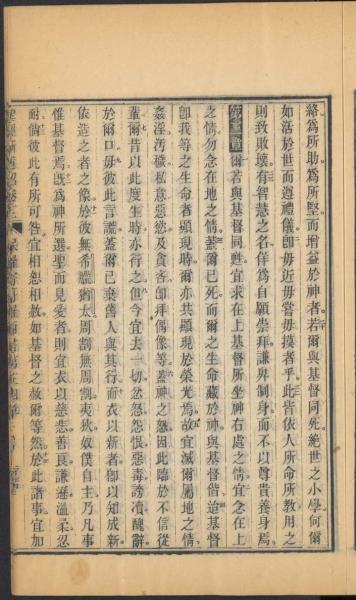 絡爲所助爲所堅而增益於神者若爾與基督同死絶世之小學何爾
如活於世而遵禮儀卽毋近毋嘗毋摸者乎此皆依人所命所教用之
則致敗壞有智慧之名佯爲自願崇拜謙卑制身而不以尊貴養身焉
爾若與基督同甦宜求在上基督所坐神右處之情宜念在上
之情勿念在地之情蓋爾已死而爾之生命藏於神與基督偕迨基督
卽我等之生命者顯現時爾亦共顯現於榮光焉故宜滅爾屬地之情
姦淫汚穢私意惡慾及貪吝卽拜偶像等蓋神之怒因此臨於不信從
輩爾昔以此度生時亦行之但今宜去一切忿怒怨恨惡毒謗瀆醜辭
於爾口毋彼此言謊蓋爾已棄舊人與其行而衣以新者卽以知成新
依造之者之像於彼無希臘猶太周割無周割夷狄奴僕自主乃凡事
惟基督焉旣爲神所選聖而見愛者則宜衣以慈悲善良謙遜溫柔忍
耐倘彼此有所可咎宜相恕相赦如基督之赦爾等然於此諸事宜加